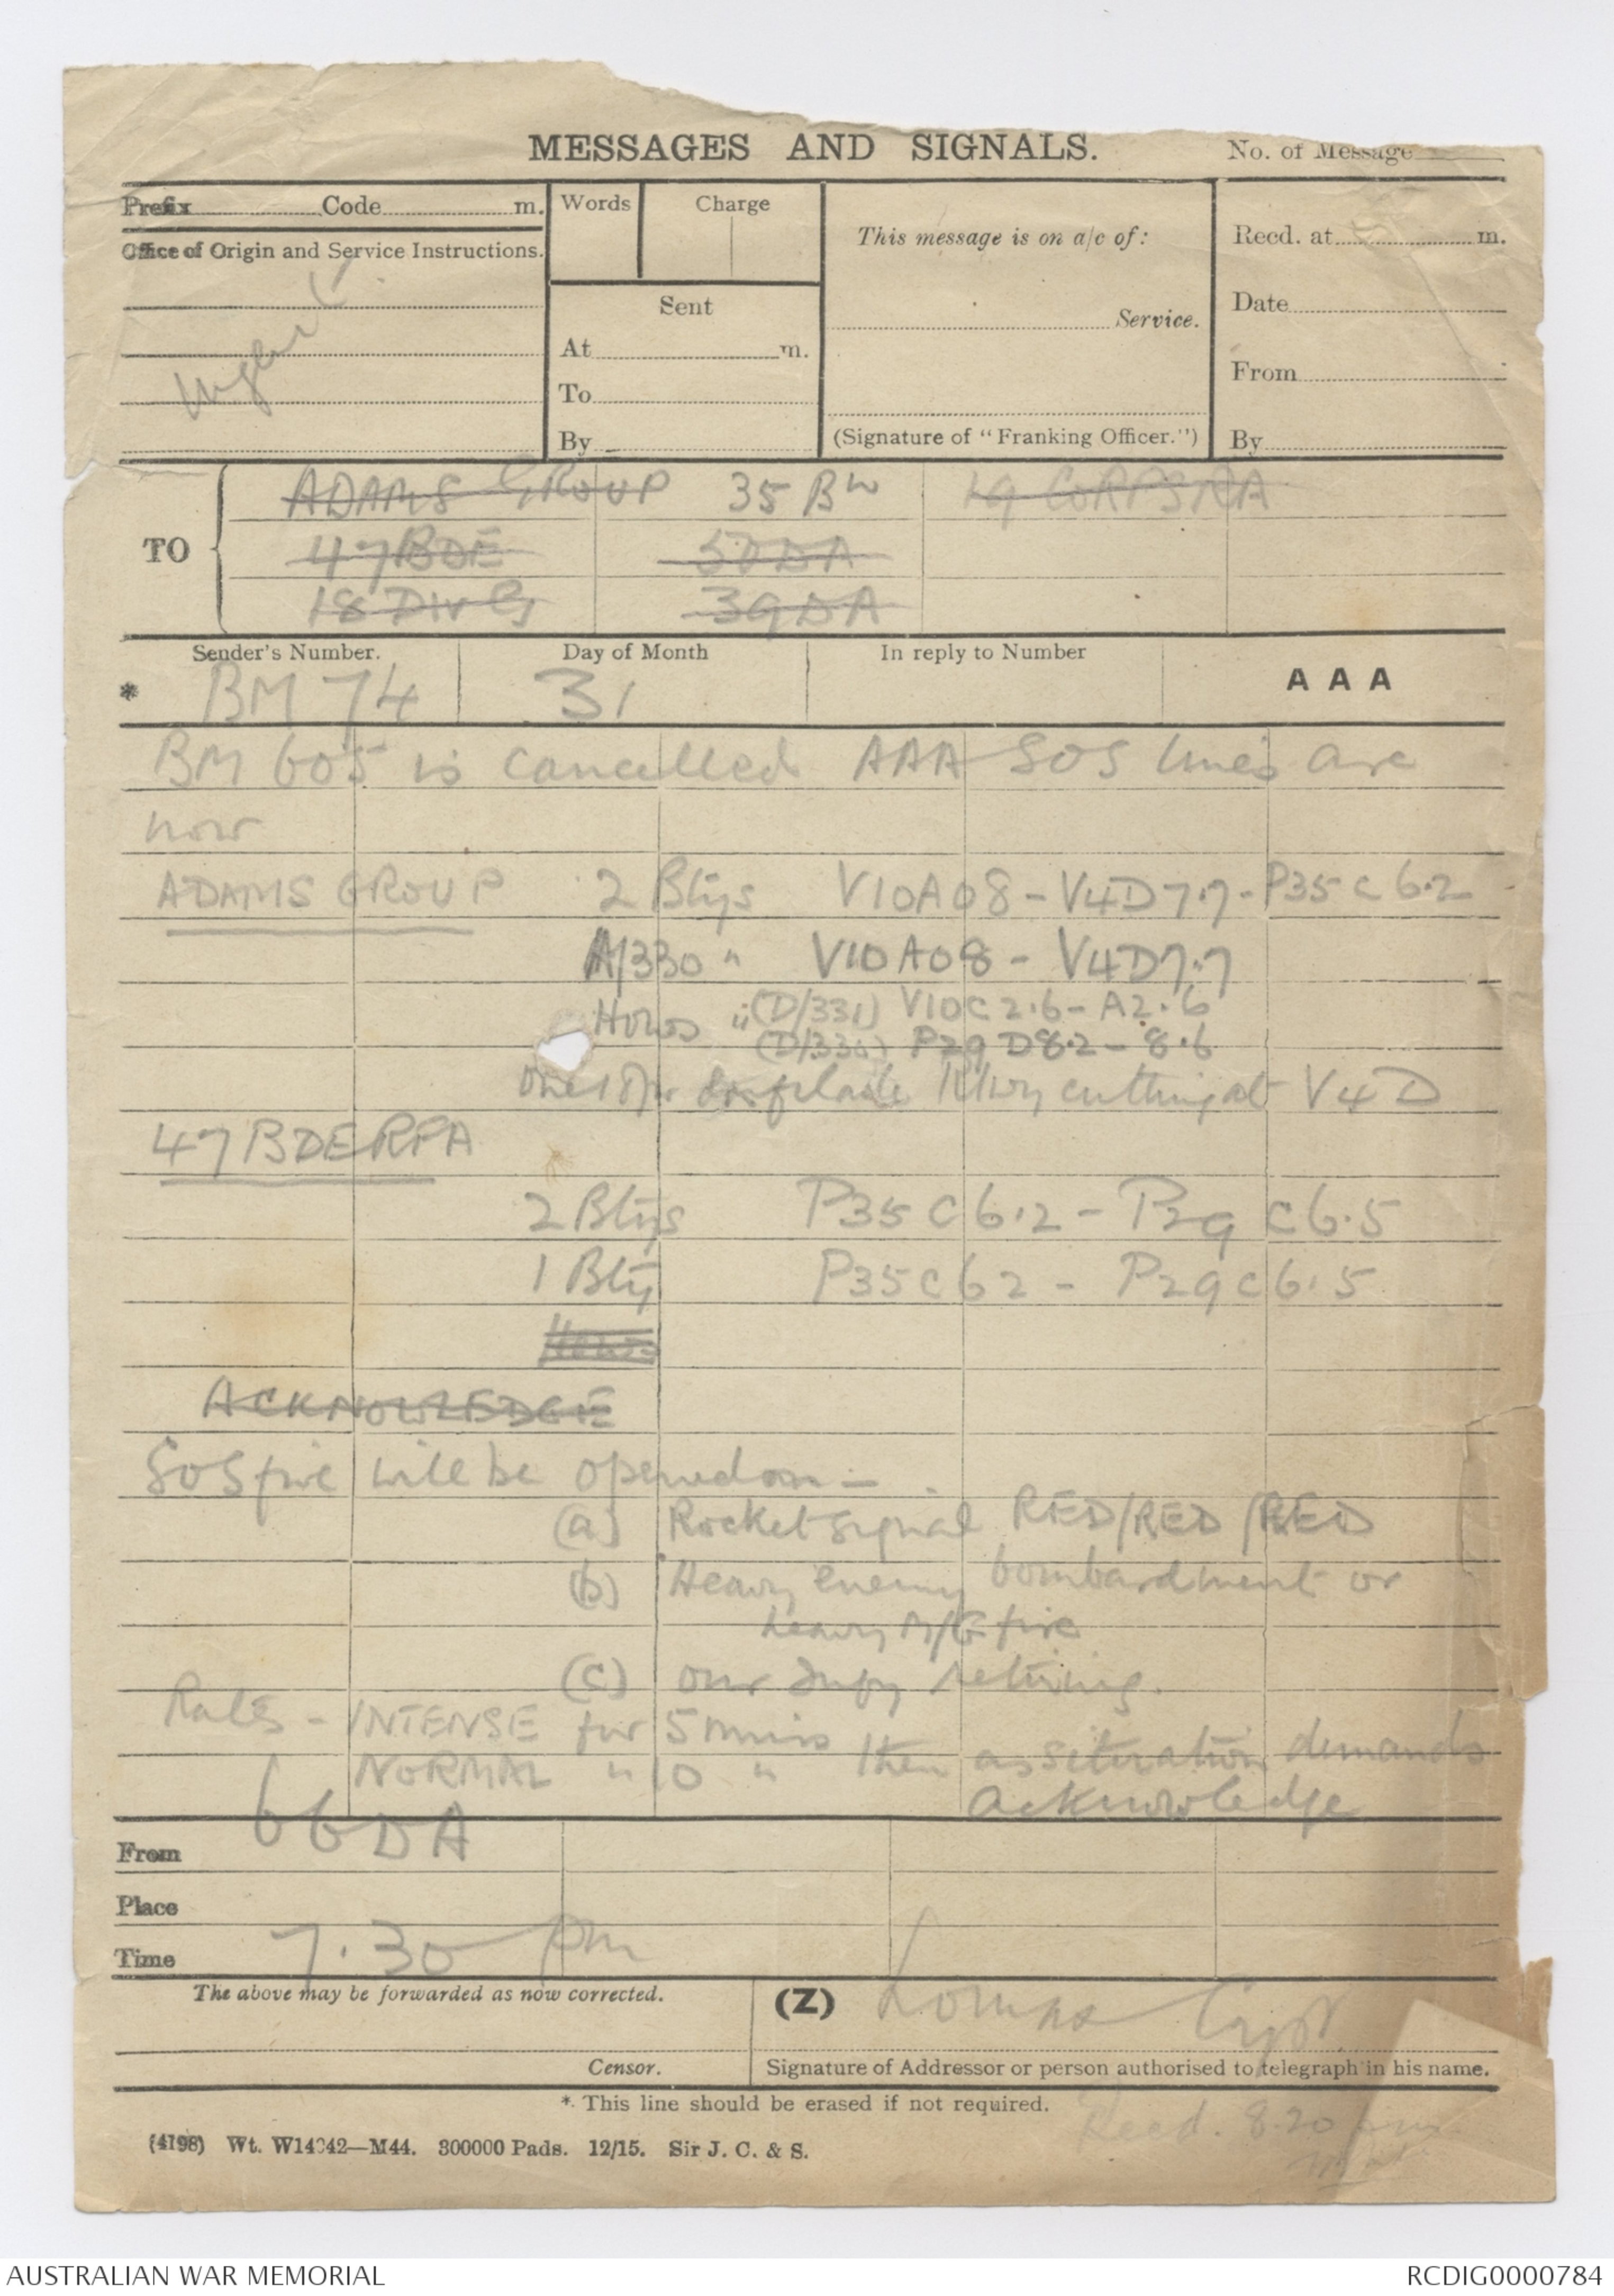 MESSAGES AND SIGNALS.
No. of Message
Prefix Code m.
Words
Charge
This message is on a/c of:
Recd. at m.
Office of Origin and Service Instructions.
Urgent
Sent
Service.
Date
At m.
To
From
By
(Signature of "Franking Officer.")
By
TO
ADAMS GROUP 35 Bn 19 CORPS RA
47 BDE 50 DA
18 DIV G 39 DA
Sender's Number. Day of Month In reply to Number
* BM 74 31 A A A
BM 605 is cancelled AAA SOS lines are
now
ADAMS GROUP 2 Btys V10A08 - V4D7.7 - P35C6.2
A/330 " V10A08 - V4D7.7
Hows " (D/331) V10C2.6 - A2.6
(D/330) P29D8.2 - 8.6
cutting at V4D
47 BDE RFA
2 Btys P35C6.2 - P29C6.5
1 Bty P35C62 - P29C6.5
Hows
ACKNOWLEDGE
SOS fire will be opened on :-
(a) Rocket signal RED/RED/RED
(b) Heavy enemy bombardment or
heavy M/G fire
(c) our Infy retiring.
Rates - INTENSE for 5 mins
NORMAL " 10 " then as situation demands
acknowledge
From 66 DA
Place
Time 7.30 pm
The above may be forwarded as now corrected.
(Z) Lomas Capt
Censor.
Signature of Addressor or person authorised to telegraph in his name.
* This line should be erased if not required.
Recd. 8.20 pm
(4198) Wt. W14042—M44. 300000 Pads. 12/15. Sir J. C. & S.
AUSTRALIAN WAR MEMORIAL
RCDIG0000784